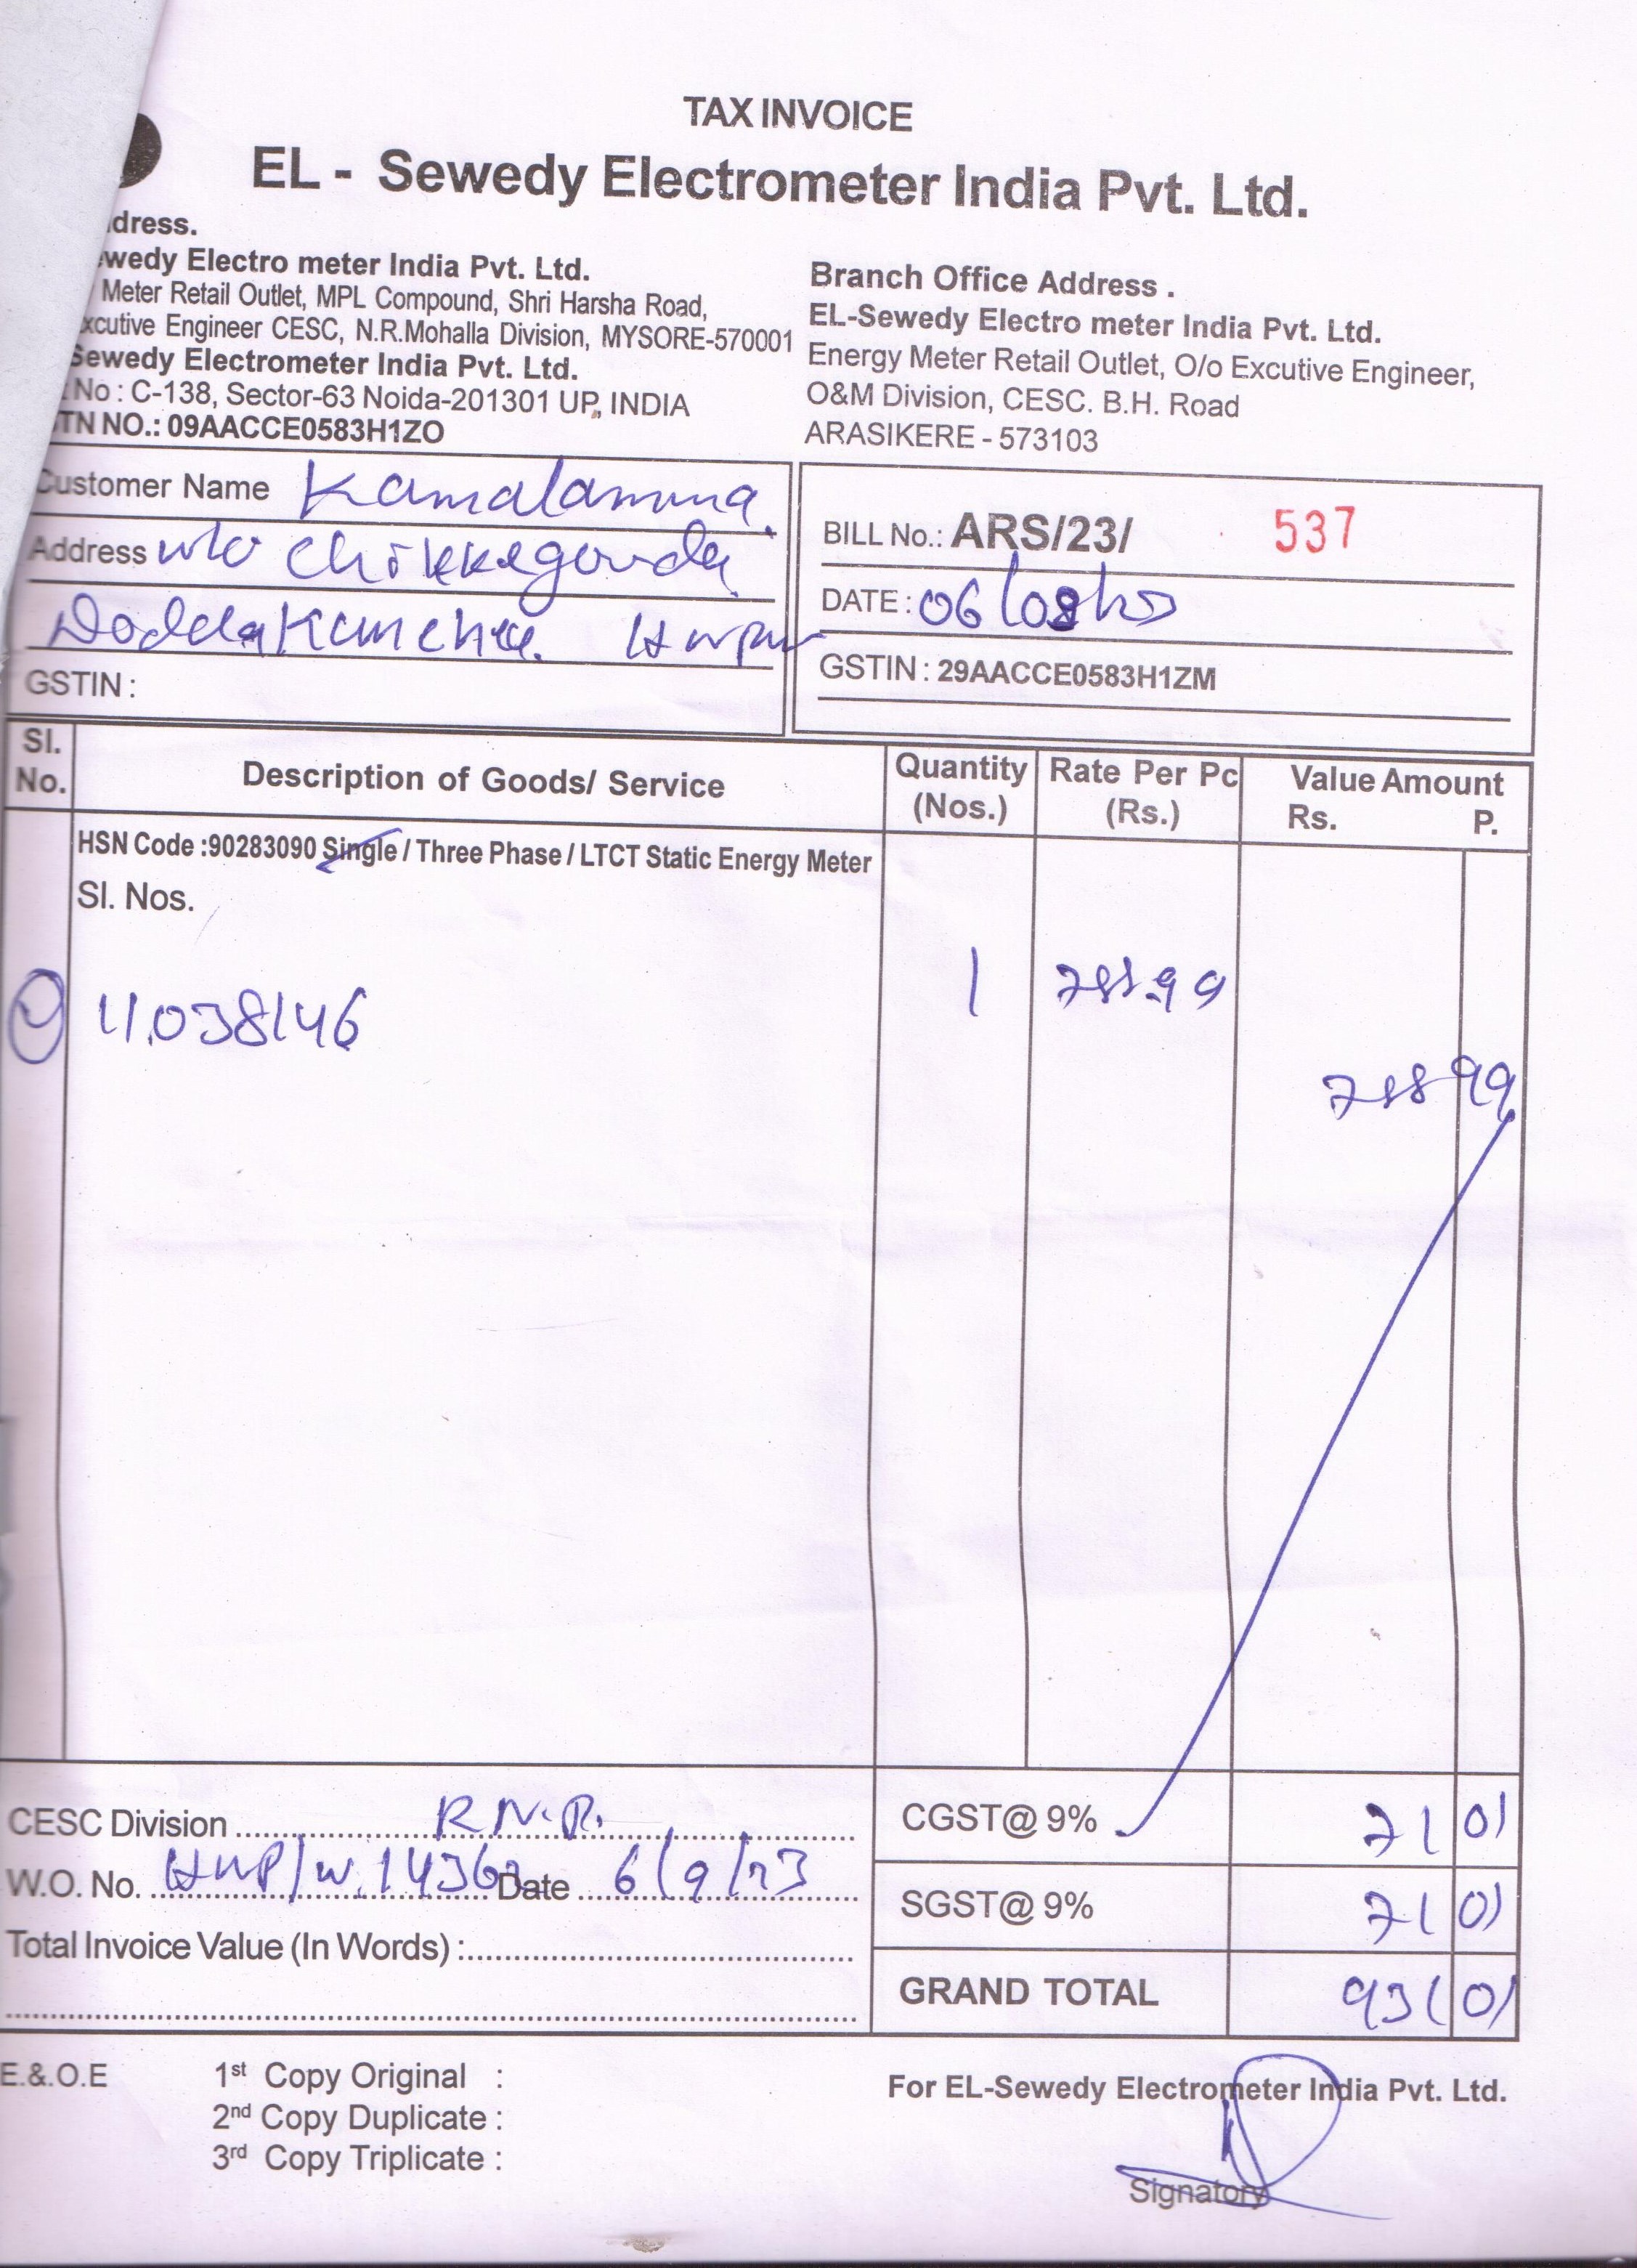 TAX INVOICE
EL - Sewedy Electrometer India Pvt. Ltd.
dress.
wedy Electro meter India Pvt. Ltd.
Meter Retail Outlet, MPL Compound, Shri Harsha Road,
xcutive Engineer CESC, N.R.Mohalla Division, MYSORE-570001
Sewedy Electrometer India Pvt. Ltd.
No : C-138, Sector-63 Noida-201301 UP, INDIA
TN NO.: 09AACCE0583H1ZO
Branch Office Address .
EL-Sewedy Electro meter India Pvt. Ltd.
Energy Meter Retail Outlet, O/o Excutive Engineer,
O&M Division, CESC. B.H. Road
ARASIKERE - 573103
Customer Name Kamalamma.
Address w/o Chikkegowda
GSTIN :
BILL No.: ARS/23/ 537
DATE :
GSTIN : 29AACCE0583H1ZM
Sl. No. Description of Goods/ Service Quantity (Nos.) Rate Per Pc (Rs.) Value Amount Rs. P.
HSN Code :90283090 Single / Three Phase / LTCT Static Energy Meter
Sl. Nos.
11038146 1 788.99
788 99
CESC Division R.N.P.
W.O. No. Date 6/9/23
Total Invoice Value (In Words) :
CGST@ 9% 71 01
SGST@ 9% 71 01
GRAND TOTAL 931 01
E.&.O.E
1st Copy Original :
2nd Copy Duplicate :
3rd Copy Triplicate :
For EL-Sewedy Electrometer India Pvt. Ltd.
Signatory